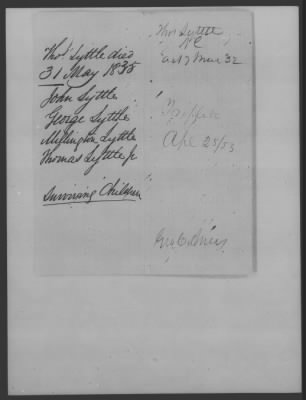 Thos. Lyttle died
31 May 1835
John Lyttle
George Lyttle
Millington Lyttle
Thomas Lyttle Jr
Surviving Children
Thos Lyttle
NC
Act 7 June 32
Apl 25/53
Geo C